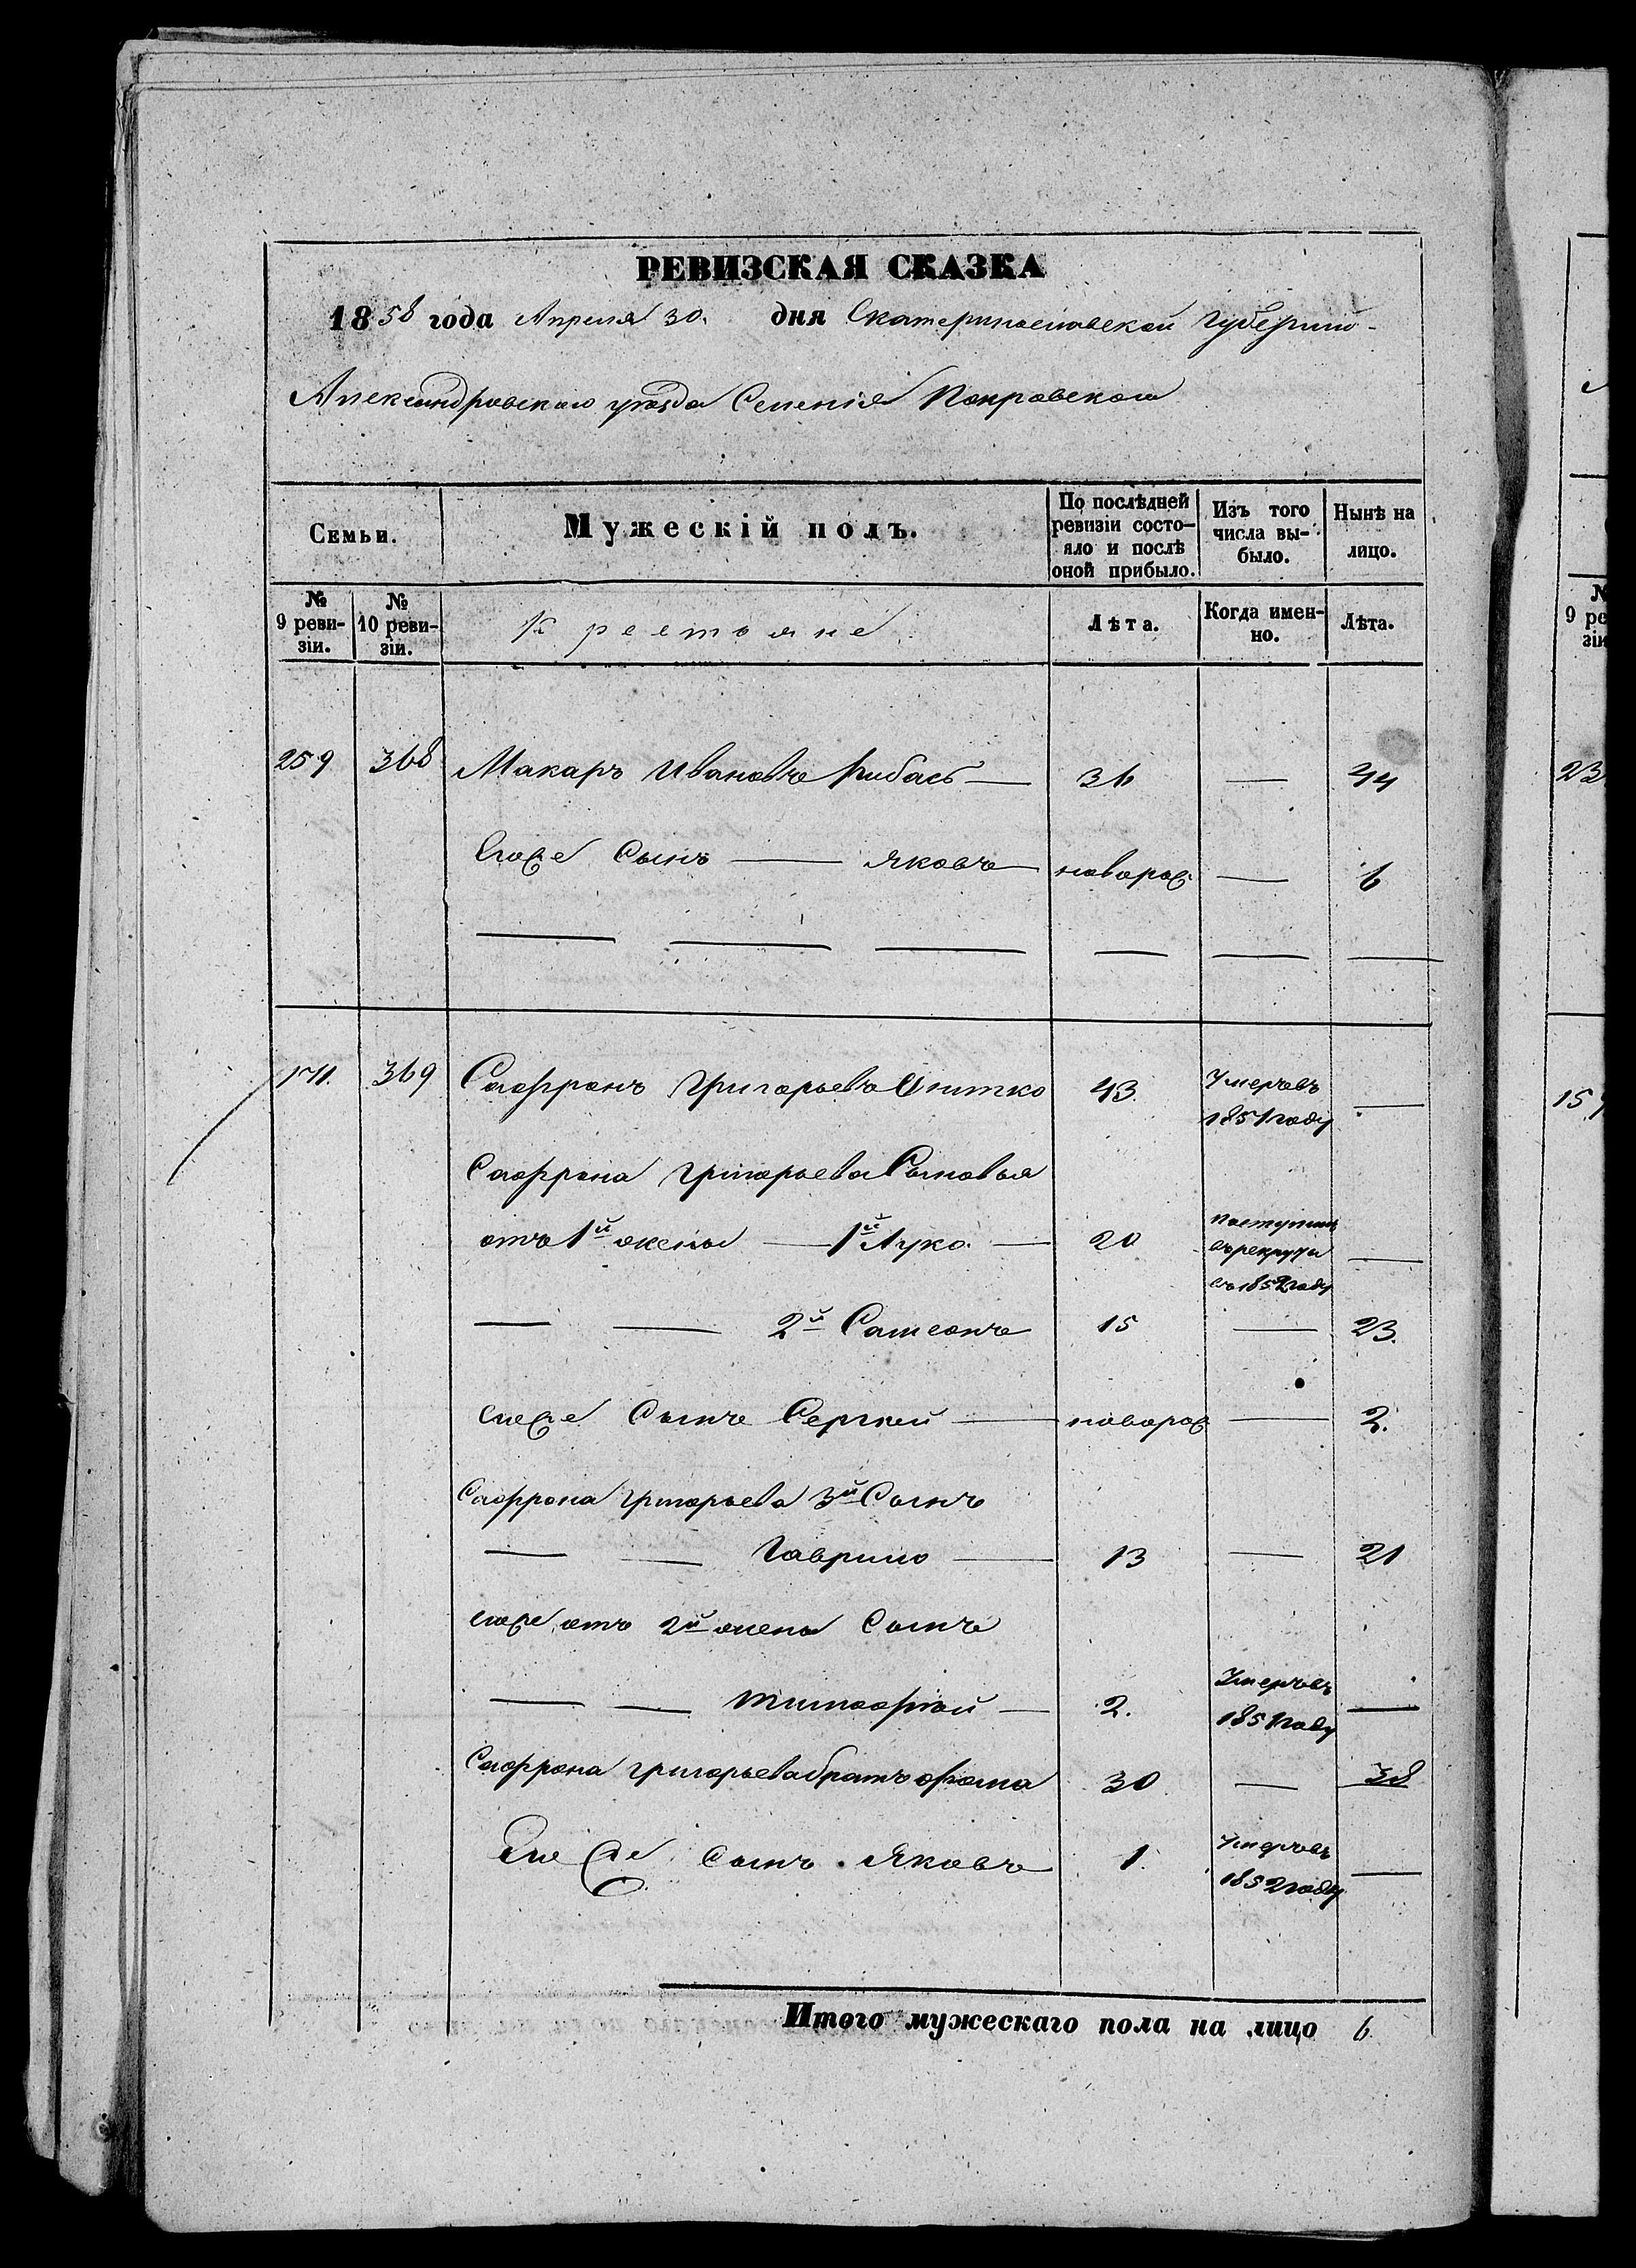 РЕВИЗСКАЯ СКАЗКА
1858 года Апреля 30. дня Екатеринославской Губернiи
Александровскаго уѣзда Селенiя Покровскаго
Семьи.
Мужескiй полъ.
По послѣдней ревизiи состо-
яло и послѣ
оной прибыло.
Изъ того
числа вы-
было.
Нынѣ на
лицо.
№
9 реви-
зiи.
№
10 реви-
зiи.
Крестьяне
Лѣта.
Когда имен-
но.
Лѣта.
259 368 Макаръ Ивановъ Рибасъ — 36 — 44
Его же Сынъ — Яковъ — новорож — 6
171. 369 Сафронъ Григорьевъ 43. Умеръ въ 1851 году —
Сафрона Григорьева Сыновья
отъ 1й жены — 1й Лука — 20 поступилъ въ рекруты въ 1852 году —
— — 2й Самсонъ 15 — 23.
его же Сынъ Сергѣй — новорож — 2.
Сафрона Григорьева 3й Сынъ
— — Гаврило — 13 — 21
его же отъ 2й жены Сынъ
— — Тимофѣй — 2. Умеръ въ 1851 году —
Сафрона Григорьева братъ Фома 30 — 38
Его же сынъ Яковъ 1. Умеръ въ 1852 году —
Итого мужескаго пола на лицо 6